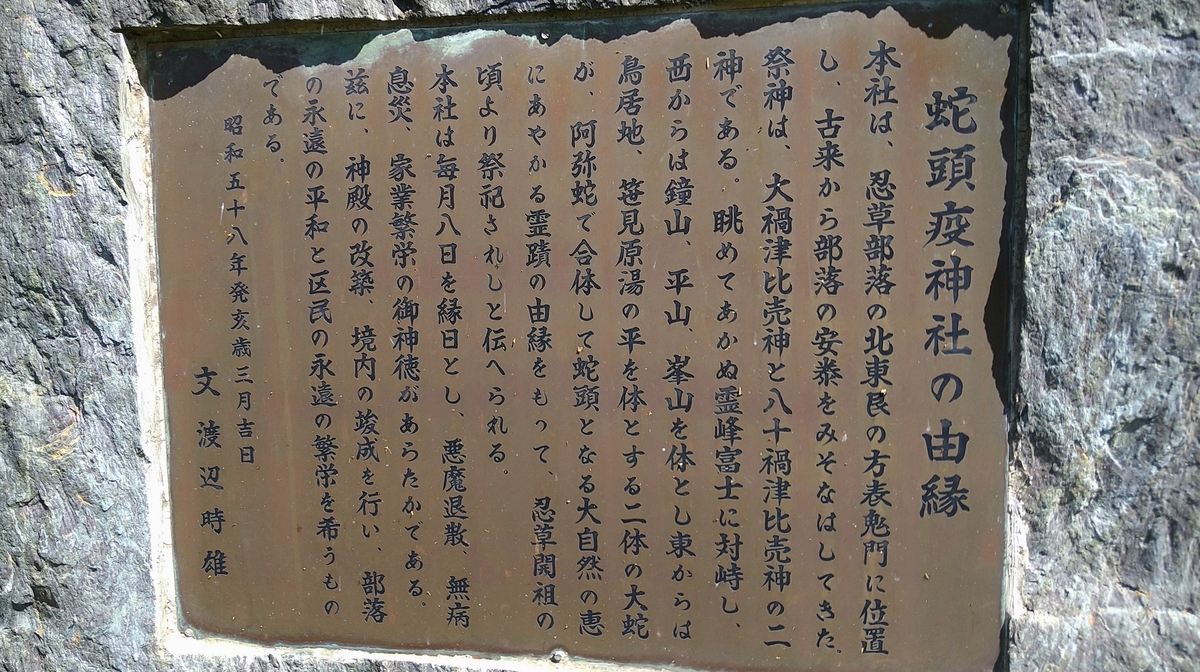 蛇頭疫神社の由縁
本社は、忍草部落の北東艮の方表鬼門に位置
し、古来から部落の安泰をみそなはしてきた。
祭神は、大禍津比売神と八十禍津比売神の二
神である。眺めてあかぬ霊峰富士に対峙し、
西からは鐘山、平山、峯山を体とし東からは
鳥居地、笹見原湯の平を体とする二体の大蛇
が、阿弥蛇で合体して蛇頭となる大自然の恵
にあやかる霊蹟の由縁をもって、忍草開祖の
頃より祭祀されしと伝へられる。
本社は毎月八日を縁日とし、悪魔退散、無病
息災、家業繁栄の御神徳があらたかである。
茲に、神殿の改築、境内の竣成を行い、部落
の永遠の平和と区民の永遠の繁栄を希うもの
である。
昭和五十八年発亥歳三月吉日
文 渡辺時雄